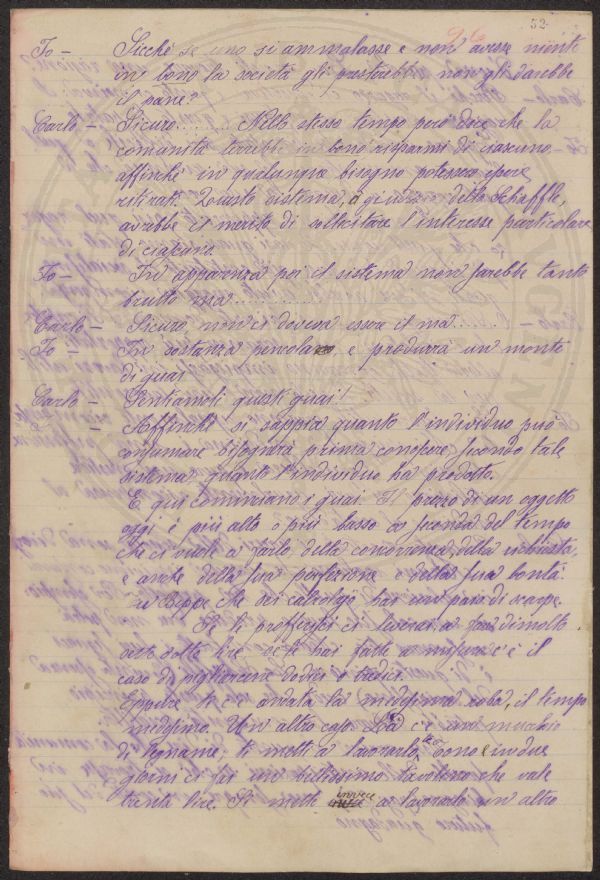 52
Io – Sicchè se uno si ammalasse e non avesse niente
in bono la società gli presterebbe, non gli darebbe
il pane?
Carlo – Sicuro....... Nello stesso tempo però dice che la
comunità terrebbe in bono i risparmi di ciascuno
affinchè in qualunque bisogno potessero essere
ritirati. Questo sistema, a giudizio dello Schaffle,
avrebbe il merito di sollecitare l'interesse particolare
di ciascuno.
Io – In apparenza poi il sistema non sarebbe tanto
brutto ma............
Carlo – Sicuro, non ci doveva essere il ma......
Io – In sostanza pericola e produrrà un monte
di guai
Carlo – Sentiamoli questi guai!
Io – Affinchè si sappia quanto l'individuo può
consumare bisognerà prima conoscere, secondo tale
sistema quanto l'individuo ha prodotto.
E qui cominciano i guai. Il prezzo di un oggetto
oggi è più alto o più basso a seconda del tempo
che ci vuole a farlo, della concorrenza, della richiesta,
e anche della sua perfezione e della sua bontà.
Tu Beppe che sei calzolaio fai un paio di scarpe.
Se ti profferisci ci lavori, a far dimolto
sette otto lire se ti fai fatte a misura c'è il
caso di pigliarcene dodici o tredici.
Eppure ti c'è andata la medesima roba, il tempo
medesimo. Un altro caso. Là c'è un mucchio
di legname: ti metti a lavorarlo te bono e in due
giorni ci fai un bellissimo tavolino che vale
trenta lire. Si mette invece a lavorarlo un altro